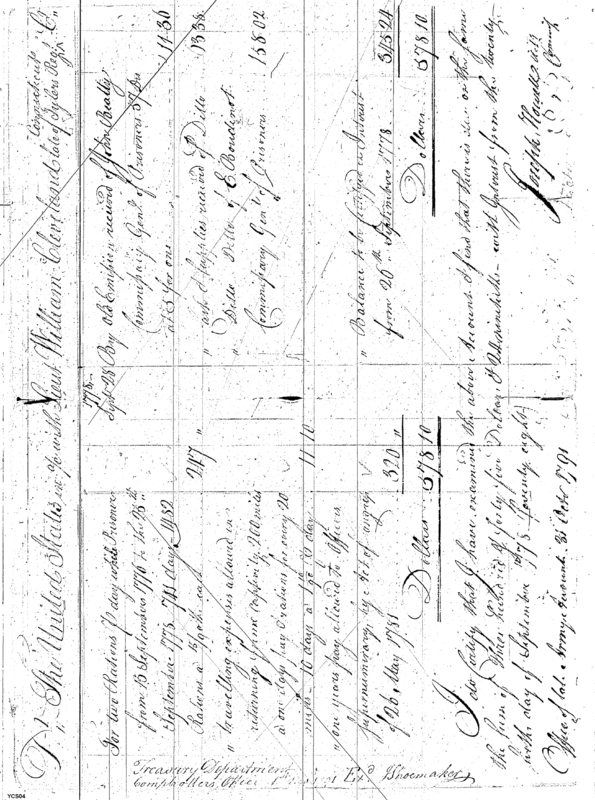 Dr. The United States in a/c with Lieut William Cleveland late of
Connecticut
"C"
For two Rations pr day while Prisoner
from 15 September 1776 to the 25th
September 1778 741 days 1482
Rations a 15/90ths each 247 "
" travelling expenses allowed in
returning from Captivity 200 miles
a one days pay & rations for every 20
miles - 10 days a 11 10
" one years pay allowed to Officers
Supernumerary, agr. Act of Congress
of 26 May 1781 320 "
Dollars 578 10
1778
Sept 28 By Old Emission received of John Beatty
Commissary Genl of Prisoners
at 5 for one 11 36
" Cash & Supplies received of Ditto 13 38
Ditto Ditto of E Boudinot
Commissary Genl of Prisoners 138 02
" Balance to be Certified on Interest
from 26th September 1778 345 24
Dollars 578 10
I do Certify that I have examined the above Account & find that there is due on the same
the Sum of Three hundred & forty five Dollars & 24 ninetieths - with Interest from the twenty
sixth day of September 1778 (seventy eight)
Office of late Army Accounts 31 Octr 1791
Joseph Howell
Treasury Department
Comptrollers Office
Exd J Shoemaker
YCS04